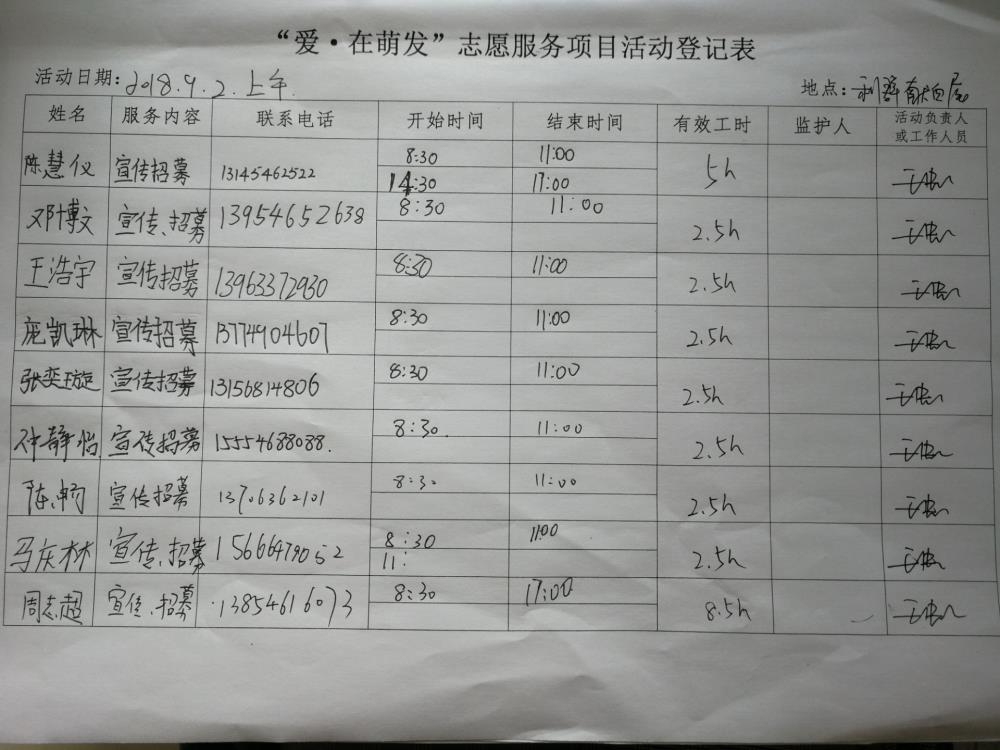 “爱·在萌发”志愿服务项目活动登记表
活动日期：2018.9.2.上午 地点：利群献血屋
姓名 服务内容 联系电话 开始时间 结束时间 有效工时 监护人 活动负责人或工作人员
陈慧仪 宣传招募 13145462522 8:30 11:00 5h
14:30 17:00
邓博文 宣传、招募 13954652638 8:30 11:00 2.5h
王浩宇 宣传招募 13963372930 8:30 11:00 2.5h
庞凯琳 宣传招募 13774904607 8:30 11:00 2.5h
张奕璇 宣传招募 13156814806 8:30 11:00 2.5h
钟静怡 宣传招募 15554688038. 8:30. 11:00 2.5h
陈畅 宣传招募 13706362101 8:30 11:00 2.5h
马庆林 宣传、招募 15666479052 8:30 11:00 2.5h
11:
周志超 宣传、招募 13854616073 8:30 17:00 8.5h